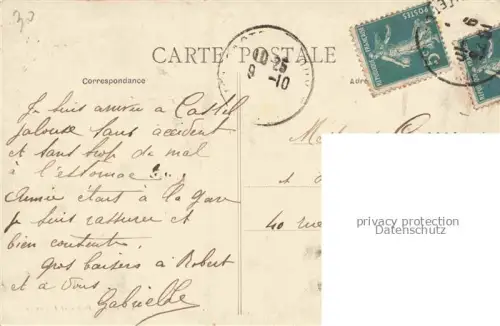 30
CARTE POSTALE
Correspondance
10-25
9 -10
Je suis arrivée à Castel
jaloux sans accident
et sans trop de mal
à l'estomac !...
Annie étant à la gare
je suis rassurée et
bien contente.
Gros baisers à Robert
et à vous.
Gabrielle
40 rue
privacy protection
Datenschutz